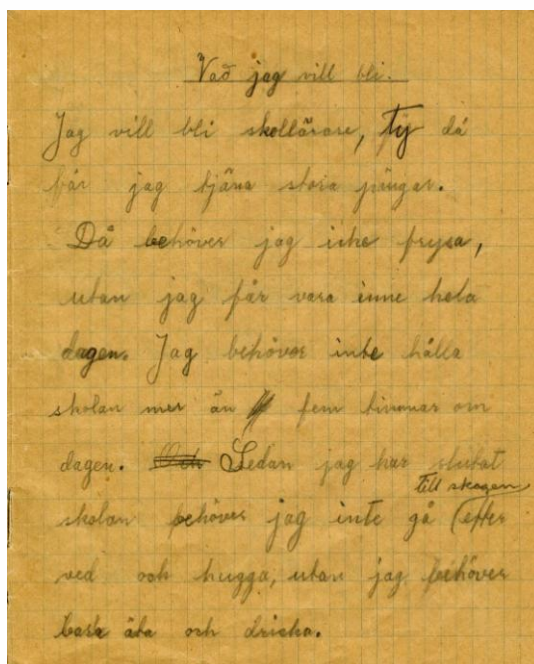 Vad jag vill bli.
Jag vill bli skollärare, ty då
får jag tjäna stora pängar.
Då behöver jag icke frysa,
utan jag får vara inne hela
dagen. Jag behöver inte hålla
skolan mer än fem timmar om
dagen. Och Sedan jag har slutat
till skogen
skolan behöver jag inte gå (efter
ved och hugga, utan jag behöver
bara äta och dricka.